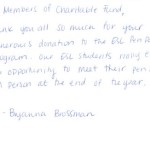 Members of Charitable Fund,
ank you all so much for your
nerous donation to the ELL Pen Pal
ogram. Our ELL students really e
opportunity to meet their pen
n person at the end of the year.
- Bryanna Brossman